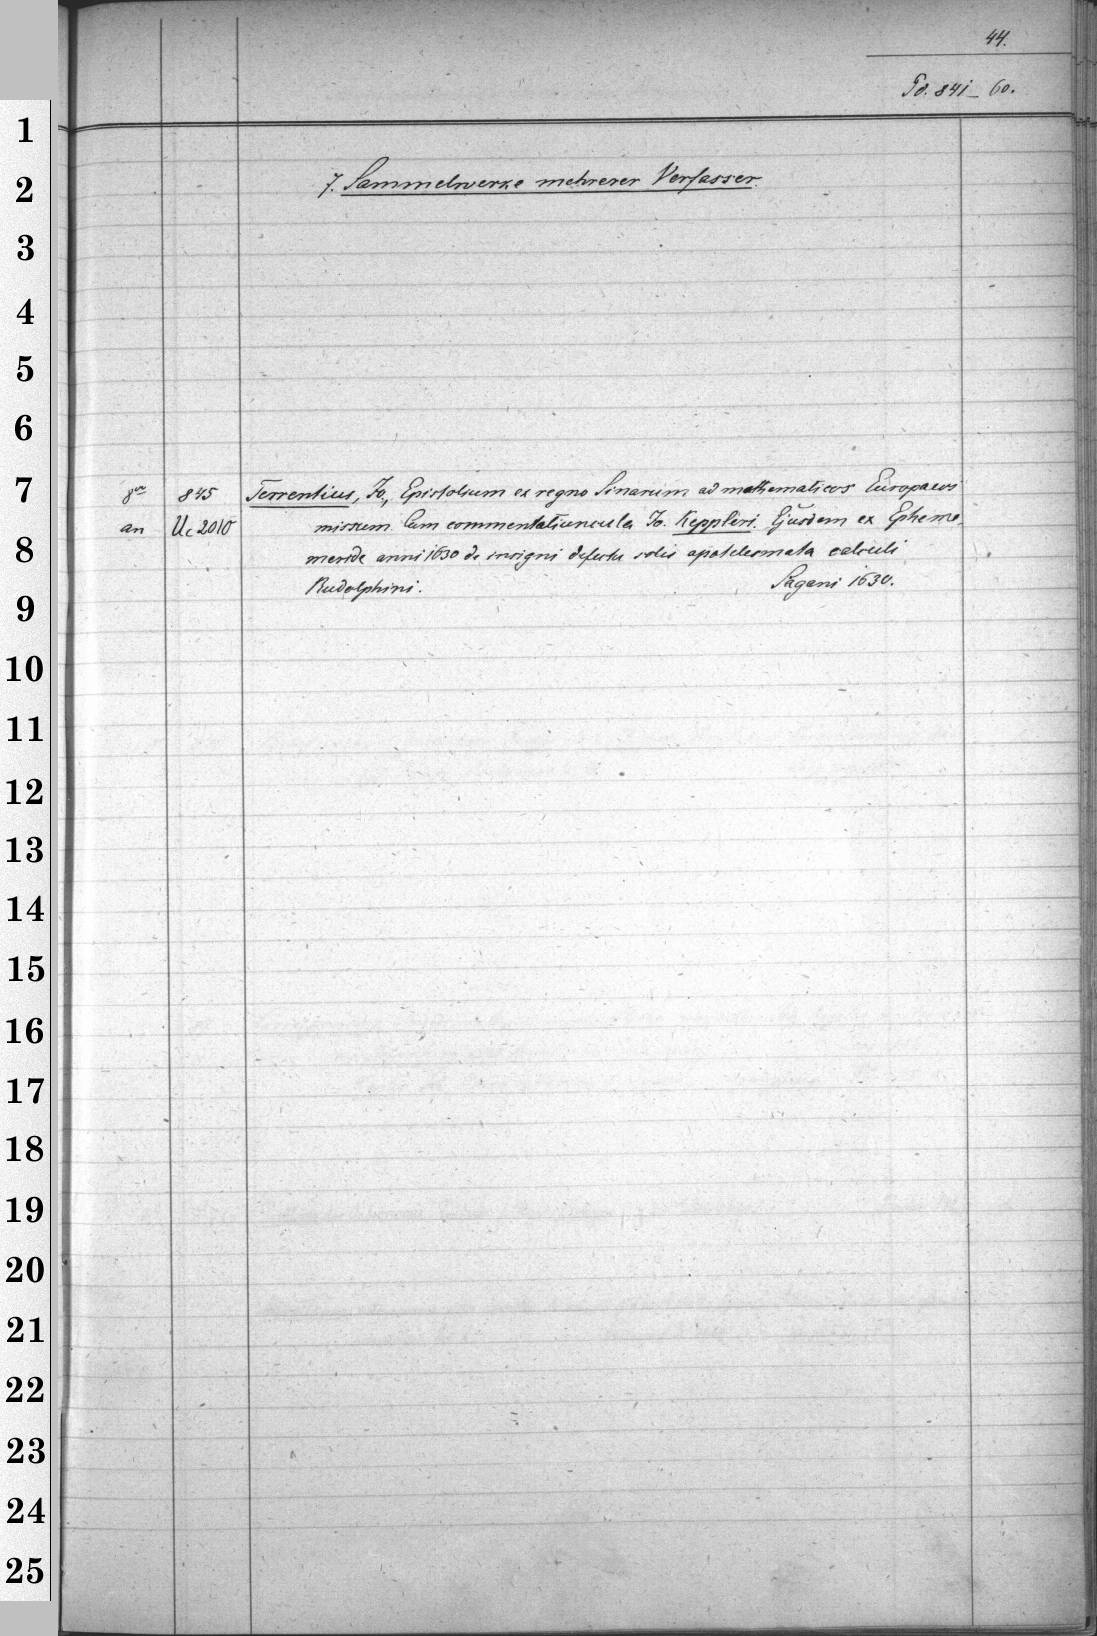 44.
Pd. 841-60.
1
2
7. Sammelwerke mehrerer Verfasser.
3
4
5
6
7
8vo 845 Terrentius, Jo., Epistolium ex regno Sinarum ad mathematicos Europaeos
an Uc 2010 missum. Cum commentatiuncula Jo. Keppleri. Ejusdem ex Epheme-
8
meride anni 1630 de insigni defectu solis apotelesmata calculi
Rudolphini. Sagani 1630.
9
10
11
12
13
14
15
16
17
18
19
20
21
22
23
24
25